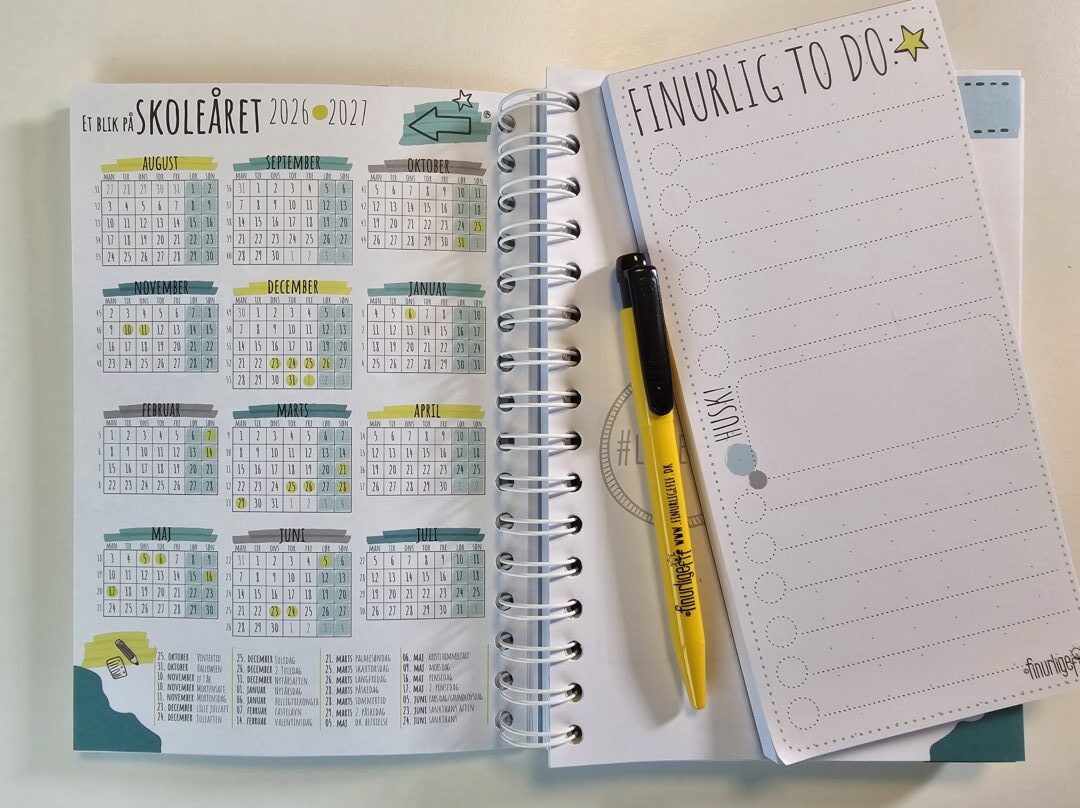 ET BLIK PÅ SKOLEÅRET 2026 • 2027
AUGUST
MAN TIR ONS TOR FRE LØR SØN
31 27 28 29 30 31 1 2
32 3 4 5 6 7 8 9
33 10 11 12 13 14 15 16
34 17 18 19 20 21 22 23
35 24 25 26 27 28 29 30
SEPTEMBER
MAN TIR ONS TOR FRE LØR SØN
36 31 1 2 3 4 5 6
37 7 8 9 10 11 12 13
38 14 15 16 17 18 19 20
39 21 22 23 24 25 26 27
40 28 29 30 1 2 3 4
OKTOBER
MAN TIR ONS TOR FRE LØR SØN
41 5 6 7 8 9 10 11
42 12 13 14 15 16 17 18
43 19 20 21 22 23 24 25
44 26 27 28 29 30 31 1
NOVEMBER
MAN TIR ONS TOR FRE LØR SØN
45 2 3 4 5 6 7 8
46 9 10 11 12 13 14 15
47 16 17 18 19 20 21 22
48 23 24 25 26 27 28 29
DECEMBER
MAN TIR ONS TOR FRE LØR SØN
49 30 1 2 3 4 5 6
50 7 8 9 10 11 12 13
51 14 15 16 17 18 19 20
52 21 22 23 24 25 26 27
53 28 29 30 31 1 2 3
JANUAR
MAN TIR ONS TOR FRE LØR SØN
1 4 5 6 7 8 9 10
2 11 12 13 14 15 16 17
3 18 19 20 21 22 23 24
4 25 26 27 28 29 30 31
FEBRUAR
MAN TIR ONS TOR FRE LØR SØN
5 1 2 3 4 5 6 7
6 8 9 10 11 12 13 14
7 15 16 17 18 19 20 21
8 22 23 24 25 26 27 28
MARTS
MAN TIR ONS TOR FRE LØR SØN
9 1 2 3 4 5 6 7
10 8 9 10 11 12 13 14
11 15 16 17 18 19 20 21
12 22 23 24 25 26 27 28
13 29 30 31 1 2 3 4
APRIL
MAN TIR ONS TOR FRE LØR SØN
14 5 6 7 8 9 10 11
15 12 13 14 15 16 17 18
16 19 20 21 22 23 24 25
17 26 27 28 29 30 1 2
MAJ
MAN TIR ONS TOR FRE LØR SØN
18 3 4 5 6 7 8 9
19 10 11 12 13 14 15 16
20 17 18 19 20 21 22 23
21 24 25 26 27 28 29 30
JUNI
MAN TIR ONS TOR FRE LØR SØN
22 31 1 2 3 4 5 6
23 7 8 9 10 11 12 13
24 14 15 16 17 18 19 20
25 21 22 23 24 25 26 27
26 28 29 30 1 2 3 4
JULI
MAN TIR ONS TOR FRE LØR SØN
27 5 6 7 8 9 10 11
28 12 13 14 15 16 17 18
29 19 20 21 22 23 24 25
30 26 27 28 29 30 31 1
25. OKTOBER VINTERTID
31. OKTOBER HALLOWEEN
10. NOVEMBER
10. NOVEMBER MORTENSAFT
11. NOVEMBER MORTENSDAG
23. DECEMBER LILLE JULEAFT
24. DECEMBER JULEAFTEN
25. DECEMBER JULEDAG
26. DECEMBER 2. JULEDAG
31. DECEMBER NYTÅRSAFTEN
01. JANUAR NYTÅRSDAG
06. JANUAR HELLIGTREKONGER
07. FEBRUAR FASTELAVN
14. FEBRUAR VALENTINSDAG
21. MARTS PALMESØNDAG
25. MARTS SKÆRTORSDAG
26. MARTS LANGFREDAG
28. MARTS PÅSKEDAG
28. MARTS SOMMERTID
29. MARTS 2. PÅSKEDAG
05. MAJ DK. BEFRIELSE
06. MAJ KRISTI HIMMELFART
09. MAJ MORSDAG
16. MAJ PINSEDAG
17. MAJ 2. PINSEDAG
05. JUNI FARSDAG/GRUNDLOVSDAG
23. JUNI SANKTHANS AFTEN
24. JUNI SANKTHANS
FINURLIG TO DO:
HUSK!
finurligefif
#L
finurligefif WWW.FINURLIGEFIF.DK